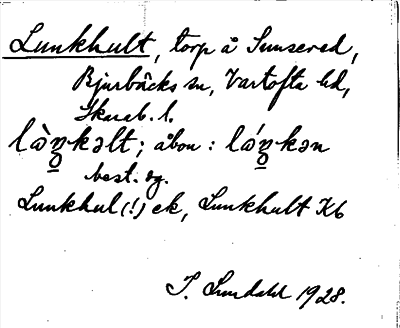 Lunkhult, torp å Sunsered,
Bjurbäcks sn, Vartofta hd,
Skarab. l.
lòŋkəlt; åbon: lóŋkən
best. sg.
Lunkhul(!) ek, Lunkhult Kb
J. Lundahl 1928.